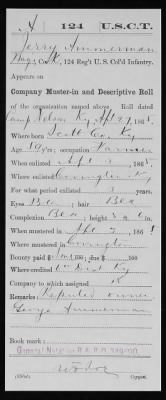 A 124 U.S.C.T.
Jerry Ammerman
, 124 Reg't U. S. Col'd Infantry.
Appears on
Company Muster-in and Descriptive Roll
of the organization named above. Roll dated
Camp Nelson Ky, Apl 27, 1865.
Where born Scott Co., Ky
Age y'rs; occupation Farmer
When enlisted Apl 3, 1865.
Where enlisted Covington Ky
For what period enlisted 3 years.
Eyes Blk; hair Blk
Complexion Blk; height ft. in.
When mustered in Apl 3, 1865
Where mustered in Covington
Bounty paid $ 100; due $ 100
Where credited 6" Dist Ky
Company to which assigned
Remarks: Reputed owner
George Ammerman
Book mark:
(334d) Copyist.